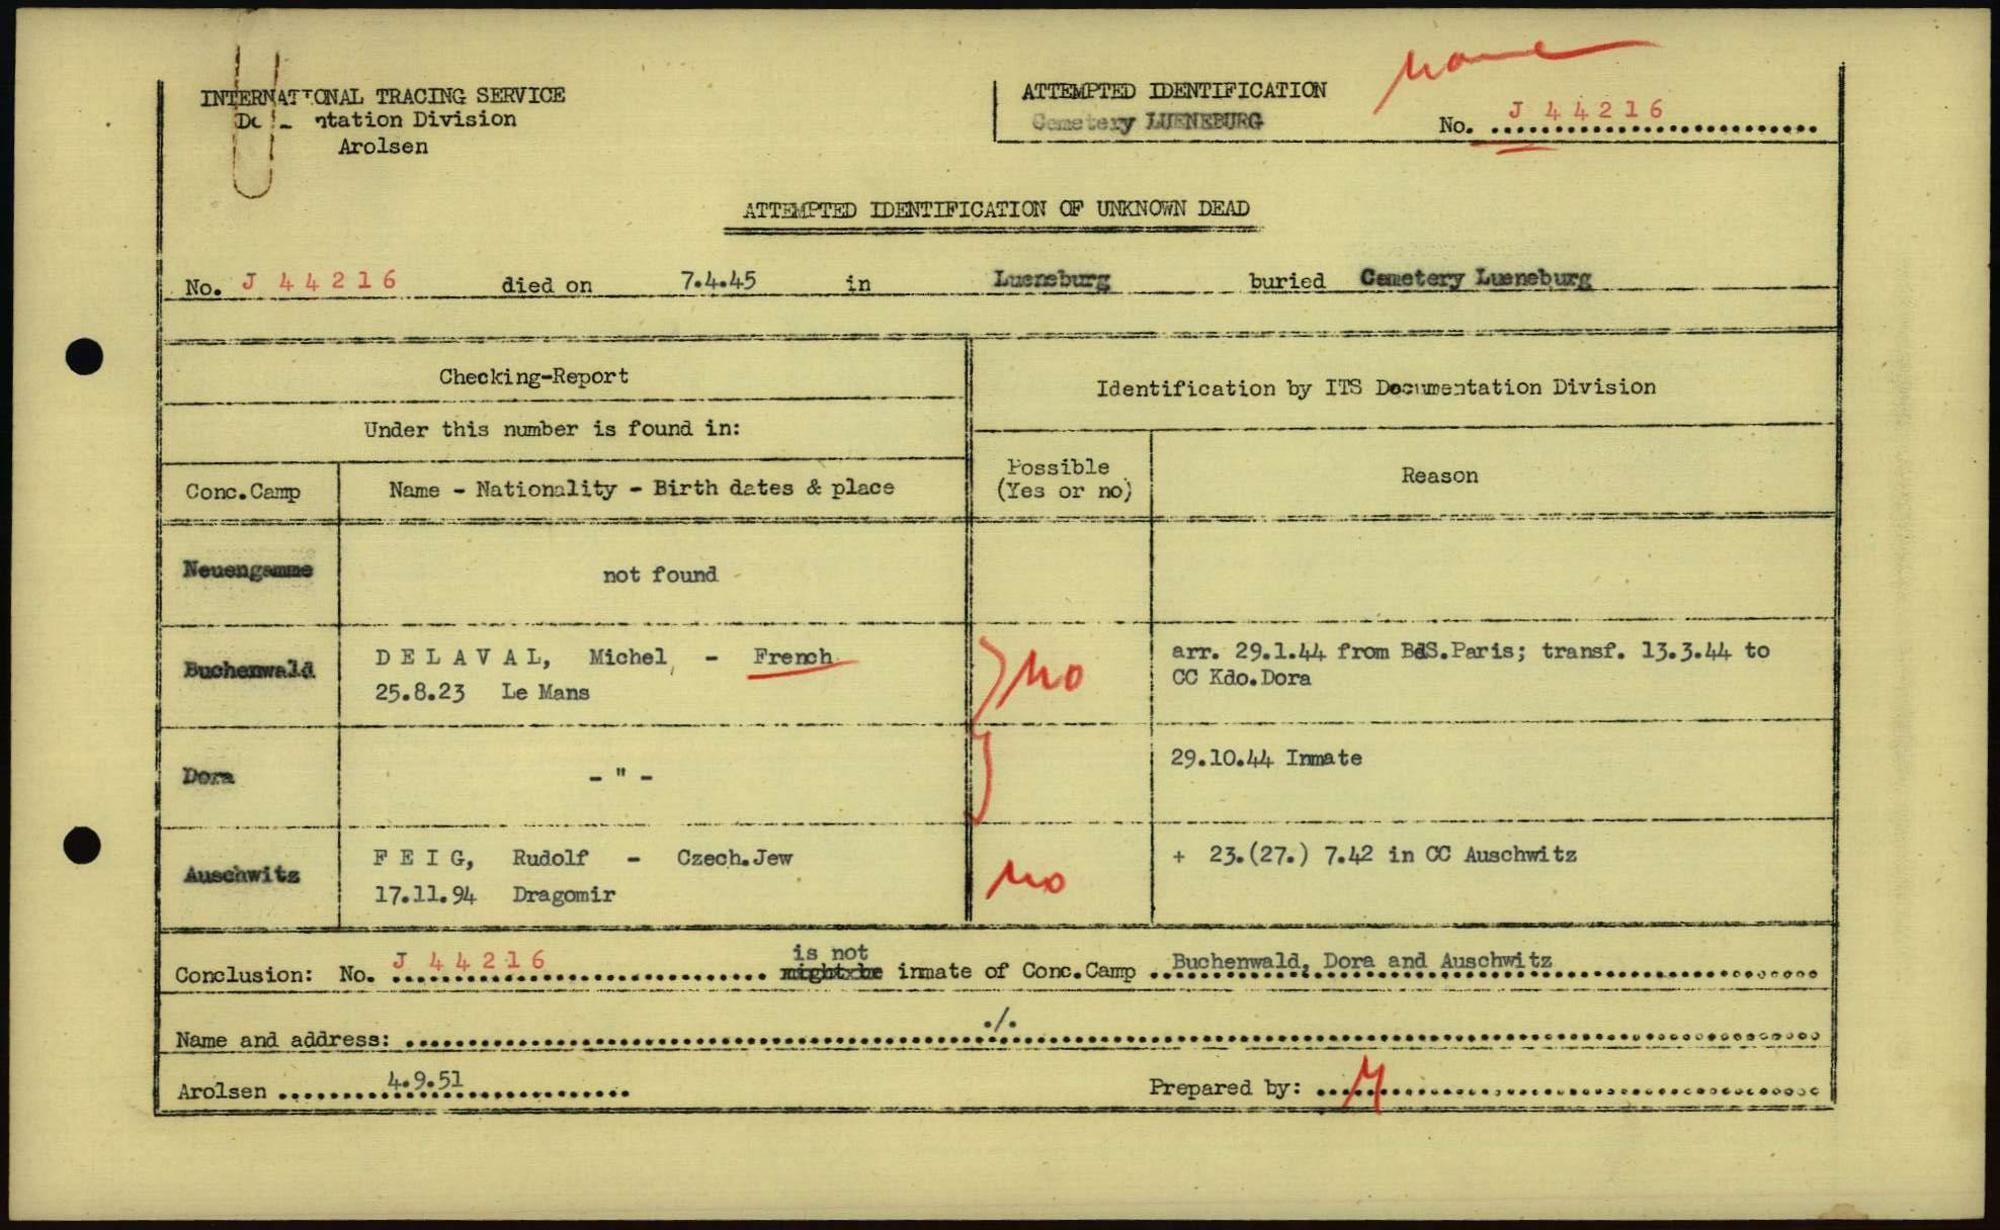 INTERNATIONAL TRACING SERVICE
Documentation Division
Arolsen
ATTEMPTED IDENTIFICATION
Cemetery LUENEBURG
No. J 44216
none
ATTEMPTED IDENTIFICATION OF UNKNOWN DEAD
No. J 44216 died on 7.4.45 in Lueneburg buried Cemetery Lueneburg
Checking-Report
Identification by ITS Documentation Division
Under this number is found in:
Conc.Camp
Name - Nationality - Birth dates & place
Possible
(Yes or no)
Reason
Neuengamme
not found
Buchenwald
D E L A V A L, Michel, - French
25.8.23 Le Mans
no
arr. 29.1.44 from BdS.Paris; transf. 13.3.44 to
CC Kdo.Dora
Dora
- " -
29.10.44 Inmate
Auschwitz
F E I G, Rudolf - Czech.Jew
17.11.94 Dragomir
no
+ 23.(27.) 7.42 in CC Auschwitz
is not
Conclusion: No. J 44216 might be inmate of Conc.Camp Buchenwald, Dora and Auschwitz
Name and address: ./.
Arolsen 4.9.51
Prepared by: